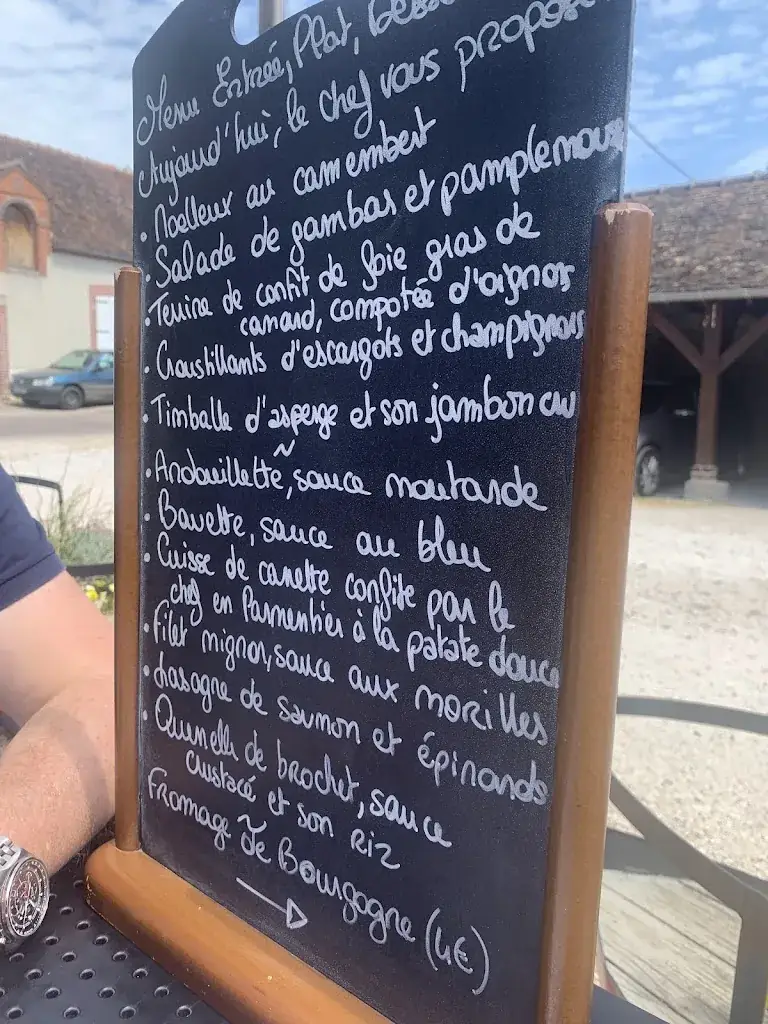 Menu Entrée, Plat, Dess
Aujourd'hui, le chef vous propose
• Moelleux au camembert
• Salade de gambas et pamplemousse
• Terrine de confit de foie gras de
canard, compotée d'oignons
• Croustillants d'escargots et champignons
• Timballe d'asperge et son jambon cru
~
• Andouillette, sauce moutarde
• Bavette, sauce au bleu
• Cuisse de canette confite par le
chef en Parmentier à la patate douce
• Filet mignon, sauce aux morilles
• Lasagne de saumon et épinards
• Quenelle de brochet, sauce
crustacé et son riz
~
Fromage de Bourgogne (4€)
→